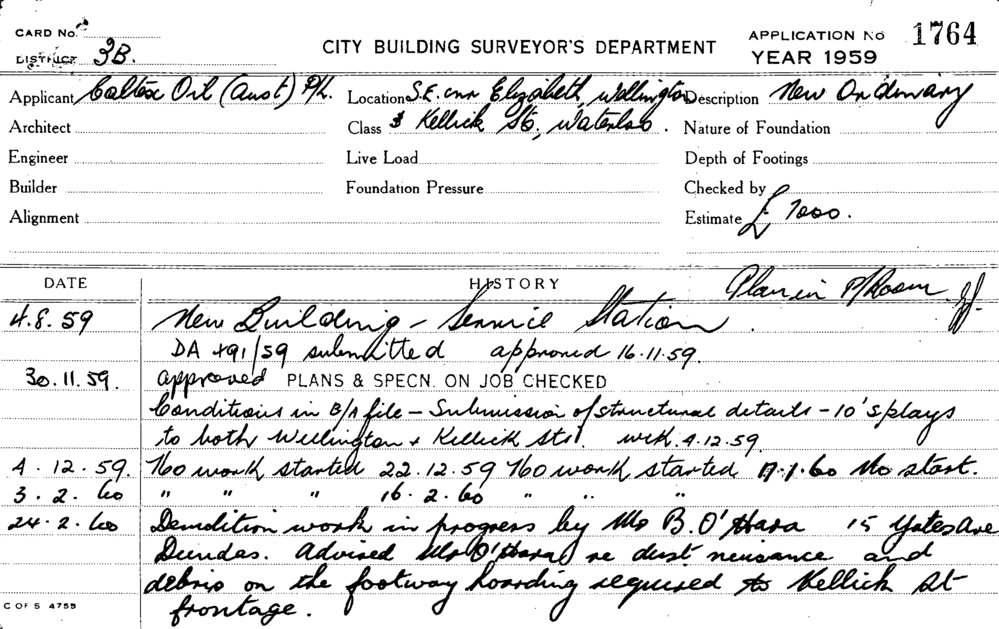 CARD No.
DISTRICT 3B.
CITY BUILDING SURVEYOR'S DEPARTMENT
APPLICATION No 1764
YEAR 1959
Applicant Caltex Oil (Aust) P/L. Location S.E. cnr Elizabeth, Wellington Description New Ordinary
Architect Class & Kellick Sts, Waterloo. Nature of Foundation
Engineer Live Load Depth of Footings
Builder Foundation Pressure Checked by
Alignment Estimate £ 7000.
DATE HISTORY Plan in P/Room
4.8.59 New Building - Service Station.
DA 491/59 submitted approved 16.11.59.
30.11.59. approved PLANS & SPECN. ON JOB CHECKED
Conditions in B/A file - Submission of structural details - 10' splays
to both Wellington + Kellick Sts. 4.12.59.
4.12.59. No work started 22.12.59 No work started 17.1.60 No start.
3.2.60 " " " 16.2.60 " " "
24.2.60 Demolition work in progress by Mr B. O'Hara 15 Yates Ave
Dundas. Advised Mr O'Hara re dust neusance and
debris on the footway hoarding required to Kellick St
frontage.
C OF S 4755